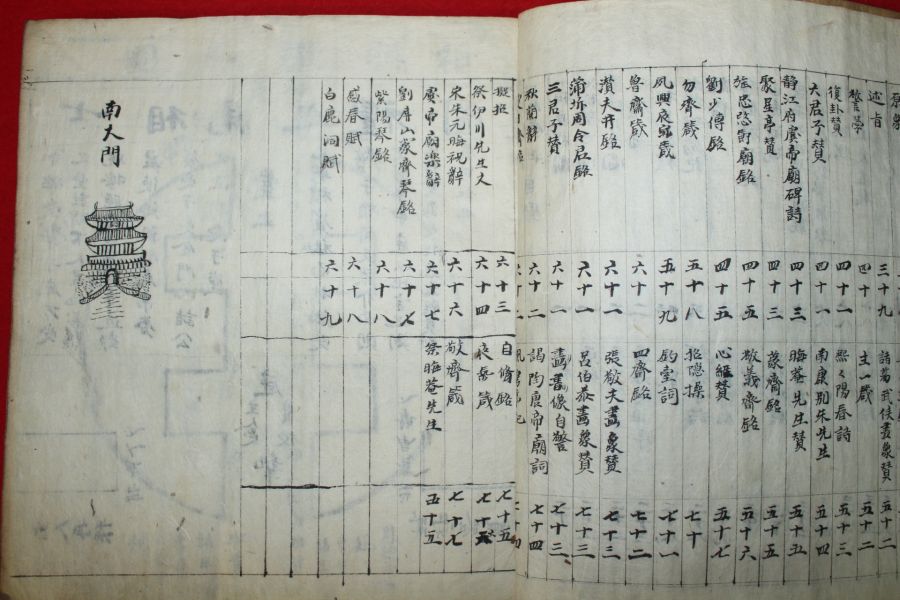 述旨
三十九
諸葛武侯畫象賛
五十二
警學
四十
主一箴
五十二
復卦賛
四十一
熙々陽春詩
五十三
六君子賛
四十一
南康別朱先生
五十四
静江府虞帝廟碑詩
四十三
晦菴先生賛
五十五
聚星亭賛
四十四
蒙齋銘
五十五
旌忠愍節廟銘
四十五
敬義齋銘
五十六
劉少傅銘
四十五
心經賛
五十七
勿齋箴
五十八
招隠操
七十
夙興夜寐箴
五十九
釣臺詞
七十一
魯齋箴
六十二
四齋銘
七十二
濆夫井銘
六十一
張敬夫畫象賛
七十三
蒲圻周令君銘
六十一
呂伯恭畫象賛
七十三
三君子賛
六十一
畵像自警
七十三
秋蘭辭
六十二
謁陶唐帝廟詞
七十四
六十三
自脩銘
七十五
祭伊川先生文
六十四
夜氣箴
宋朱元晦祝辭
六十六
敬齋箴
七十七
虞帝廟樂辭
六十七
祭晦菴先生
五十五
劉屏山蒙齋琴銘
六十七
紫陽琴銘
六十八
感春賦
六十八
白鹿洞賦
六十九
南大門